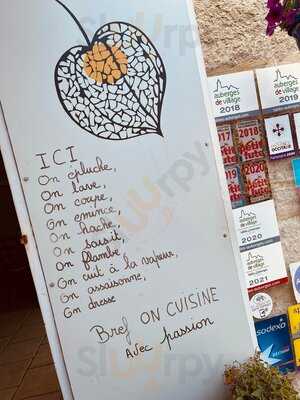 ICI
On épluche,
On lave,
On coupe,
On émince,
On hache,
On saisit,
On flambe,
On cuit à la vapeur,
On assaisonne,
On dresse
Bref ON CUISINE
Avec passion
auberges
de village
2018
auberges
de village
2019
2017
petit
futé
2018
petit
futé
OCCITANIE
auberges
de village
2020
auberges
de village
2021
sodexo